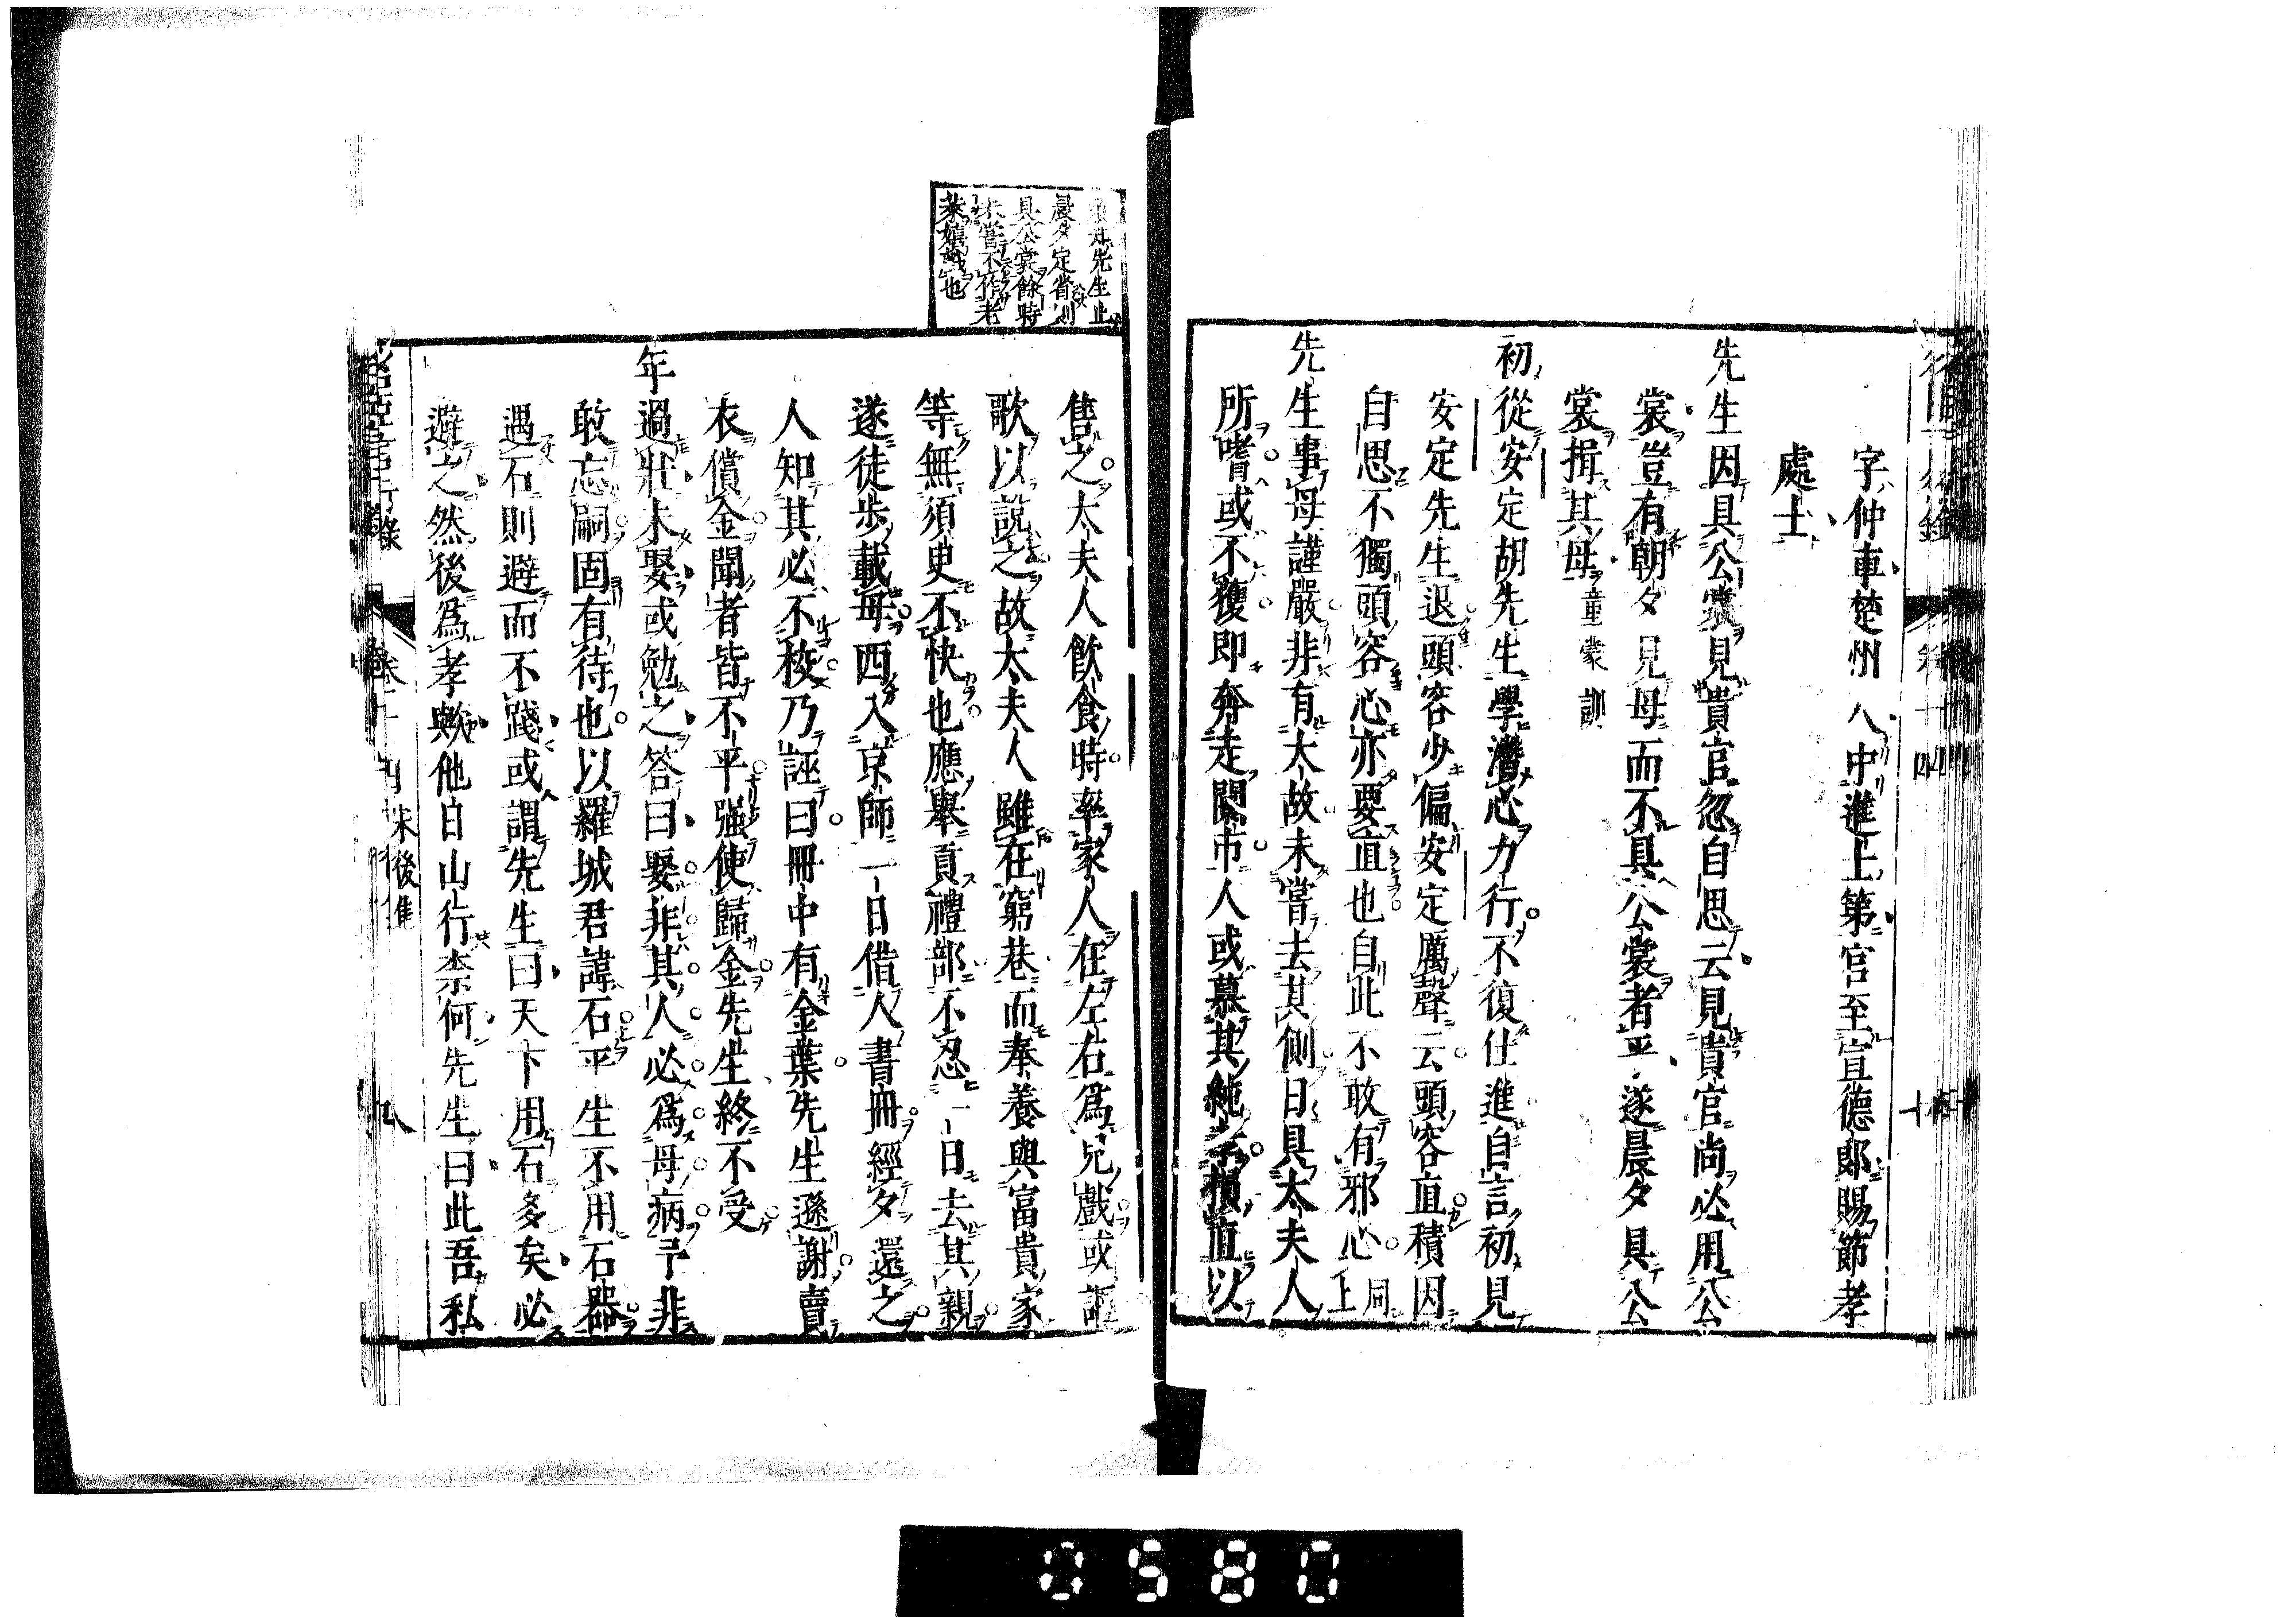 字仲車楚州人中進士第官至宣德郎賜節孝
處士
先生因具公裳見貴官忽自思云見貴官尚必用公
裳豈有朝夕見母而不具公裳者乎遂晨夕具公
裳揖其母童蒙訓
初從安定胡先生學潛心力行不復仕進自言初見
安定先生退頭容少偏安定厲聲云頭容直積因
自思不獨頭容心亦要直也自此不敢有邪心同上
先生事母謹嚴非有大故未嘗去其側日具太夫人
所嗜或不獲即奔走闤市人或慕其純孝損直以
先生止
晨夕定省
具公裳餘時
未嘗不作老
萊嬉戲也
售之太夫人飲食時率家人在左右為兒戲或謳
歌以說之故太夫人雖在窮巷而奉養與富貴家
等無須臾不快也應舉貢禮部不忍一日去其親
遂徒步載母西入京師一日借人書冊經夕還之
人知其必不校乃誣曰冊中有金葉先生遜謝賣
衣償金聞者皆不平強使歸金先生終不受
年過壯未娶或勉之答曰娶非其人必為母病予非
敢忘嗣固有待也以羅城君諱石平生不用石器
遇石則避而不踐或謂先生曰天下用石多矣必
避之然後為孝歟他日山行柰何先生曰此吾私
宋後集
0580